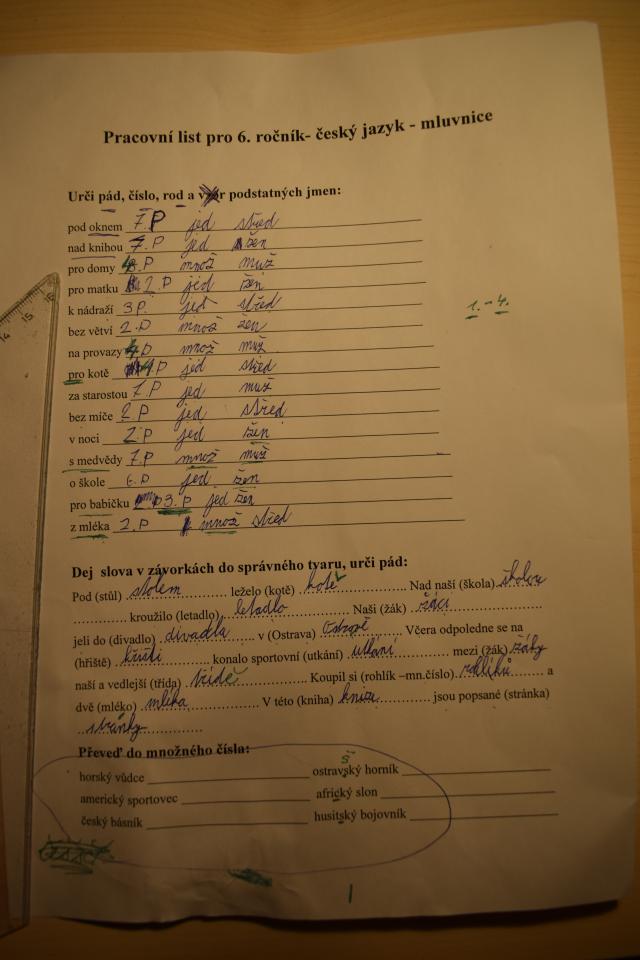 Pracovní list pro 6. ročník- český jazyk - mluvnice
Urči pád, číslo, rod a vzor podstatných jmen:
pod oknem 7. P jed střed
nad knihou 7. P jed žen
pro domy 4. P množ muž
pro matku 2. P jed žen
k nádraží 3 P. jed střed
1. - 4.
bez větví 2. P množ žen
na provazy 4. P množ muž
pro kotě 4 P jed střed
za starostou 7. P jed muž
bez míče 2. P jed střed
v noci 2. P jed žen
s medvědy 7. P množ muž
o škole 6. P jed žen
pro babičku 3. P jed žen
z mléka 2. P množ střed
Dej slova v závorkách do správného tvaru, urči pád:
Pod (stůl) stolem leželo (kotě) kotě Nad naší (škola) školou
kroužilo (letadlo) letadlo Naši (žák) žáci
jeli do (divadlo) divadla v (Ostrava) Ostravě Včera odpoledne se na
(hřiště) hřišti konalo sportovní (utkání) utkání mezi (žák) žáky
naší a vedlejší (třída) třídě Koupil si (rohlík –mn.číslo) rohlíků a
dvě (mléko) mléka V této (kniha) knize jsou popsané (stránka)
stránky
Převeď do množného čísla:
horský vůdce ostravský horník
š
americký sportovec africký slon
český básník husitský bojovník
1